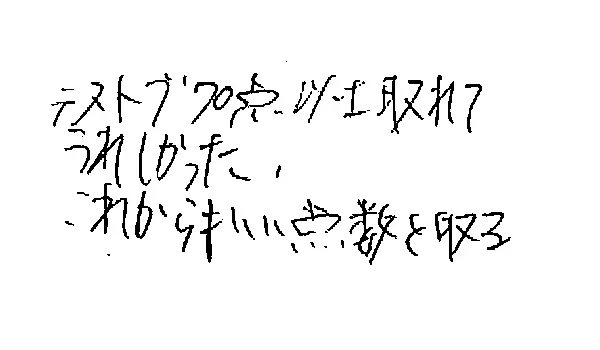 テストで70点以上取れて
うれしかった。
これからもいい点数を取る